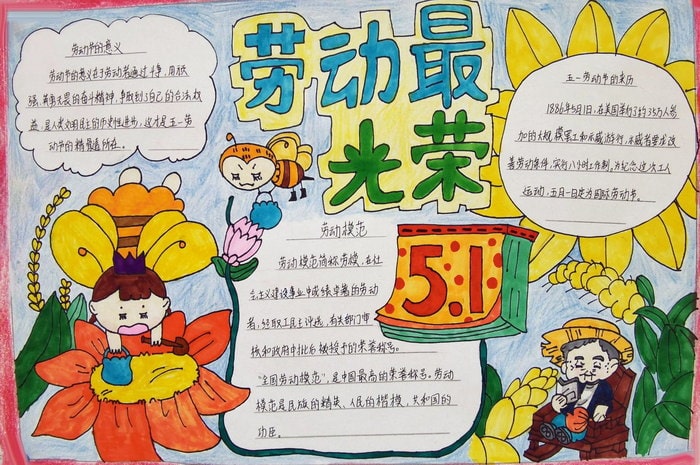 劳动最
光荣
劳动节的意义
劳动节的意义在于劳动者通过斗争,用顽
强、英勇无畏的奋斗精神,争取到了自己的合法权
益,是人类文明民主的历史性进步,这才是五一劳
动节的精髓所在。
五一劳动节的来历
1886年5月1日,在美国举行了约35万人参
加的大规模罢工和示威游行,示威者要求改
善劳动条件,实行八小时工作制。为纪念这次工人
运动,五月一日定为国际劳动节。
劳动模范
劳动模范简称劳模,在社
会主义建设事业中成绩卓著的劳动
者,经职工民主评选,有关部门审
核和政府审批后被授予的荣誉称号。
"全国劳动模范",是中国最高的荣誉称号。劳动
模范是民族的精英、人民的楷模,共和国的
功臣。
5.1